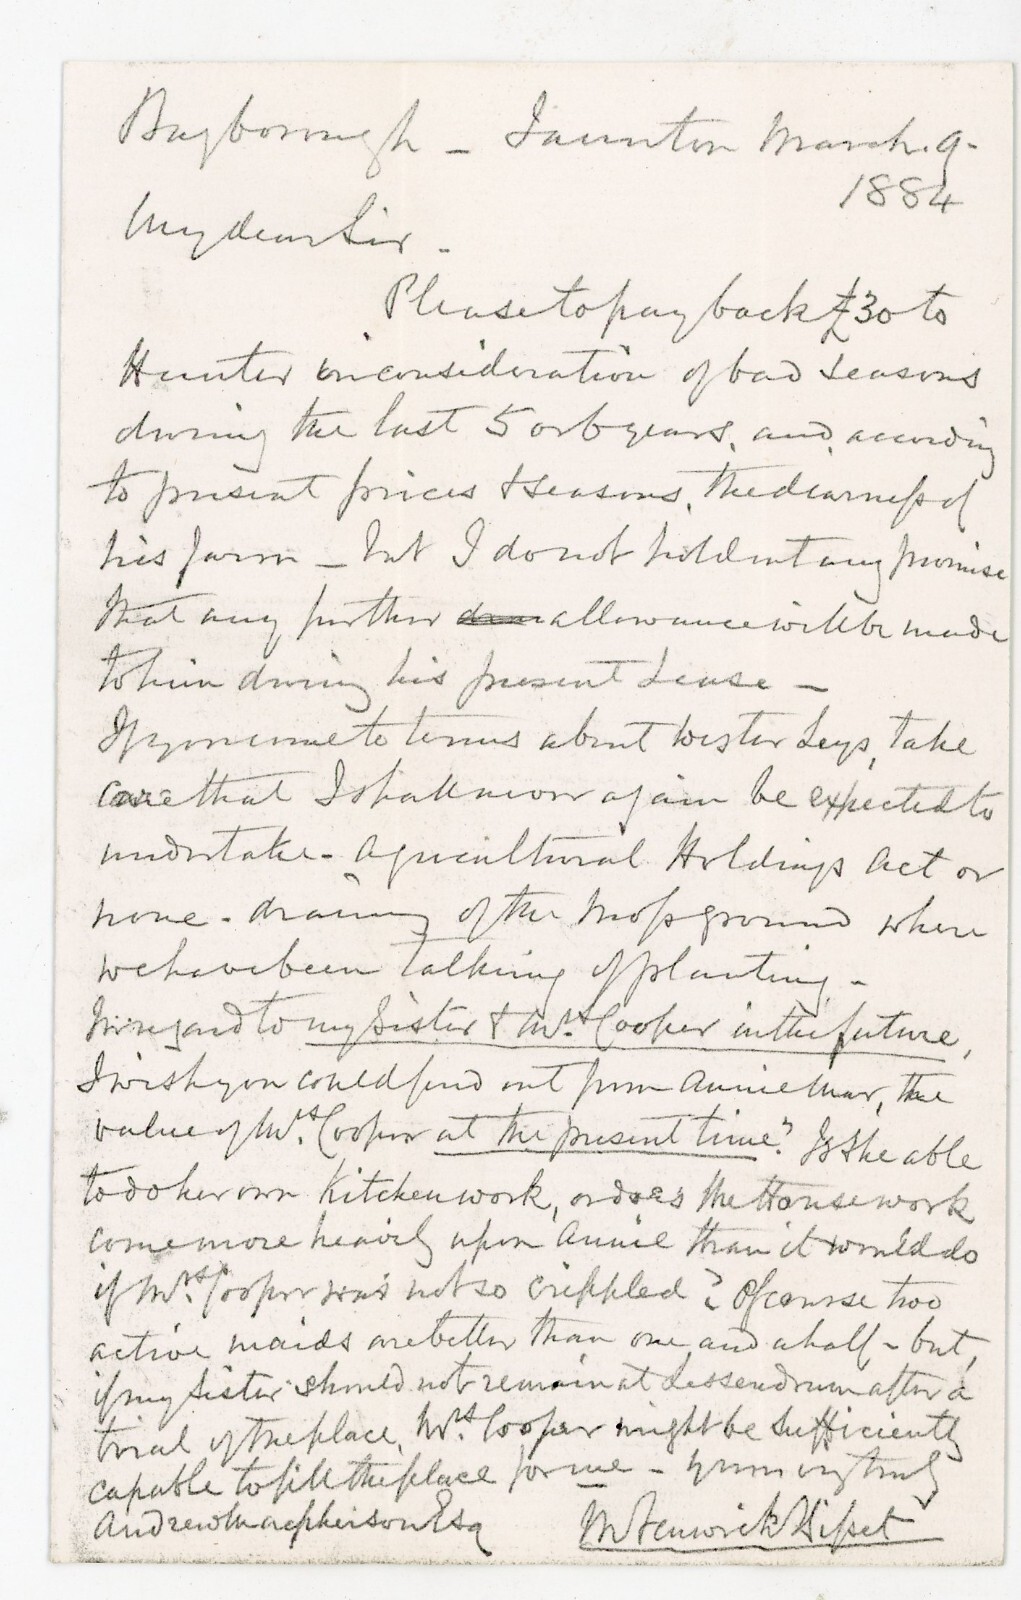 Bagborough - Taunton March. 9-
1884
My dear Sir -
Please to pay back £30 to
Hunter in consideration of bad seasons
during the last 5 or 6 years, and, according
to present prices & seasons, the dearness of
his farm - but I do not hold out any promise
that any further allowance will be made
to him during his present Lease -
If you come to terms about Wester Leys, take
care that I shall never again be expected to
undertake - Agricultural Holdings Act or
none - draining of the Moss ground where
we have been talking of planting -
In regard to my Sister & Mrs. Cooper in the future,
I wish you could find out from Annie Mar, the
value of Mrs. Cooper at the present time? Is she able
to do her own Kitchen work, or does the House work
come more heavily upon Annie than it would do
if Mrs. Cooper was not so crippled? Of course two
active maids are better than one and a half - but,
if my Sister should not remain at Lessendrum after a
trial of the place, Mrs. Cooper might be sufficiently
capable to fill the place for me - yours very truly
Andrew Macpherson Esq M Fenwick Bisset